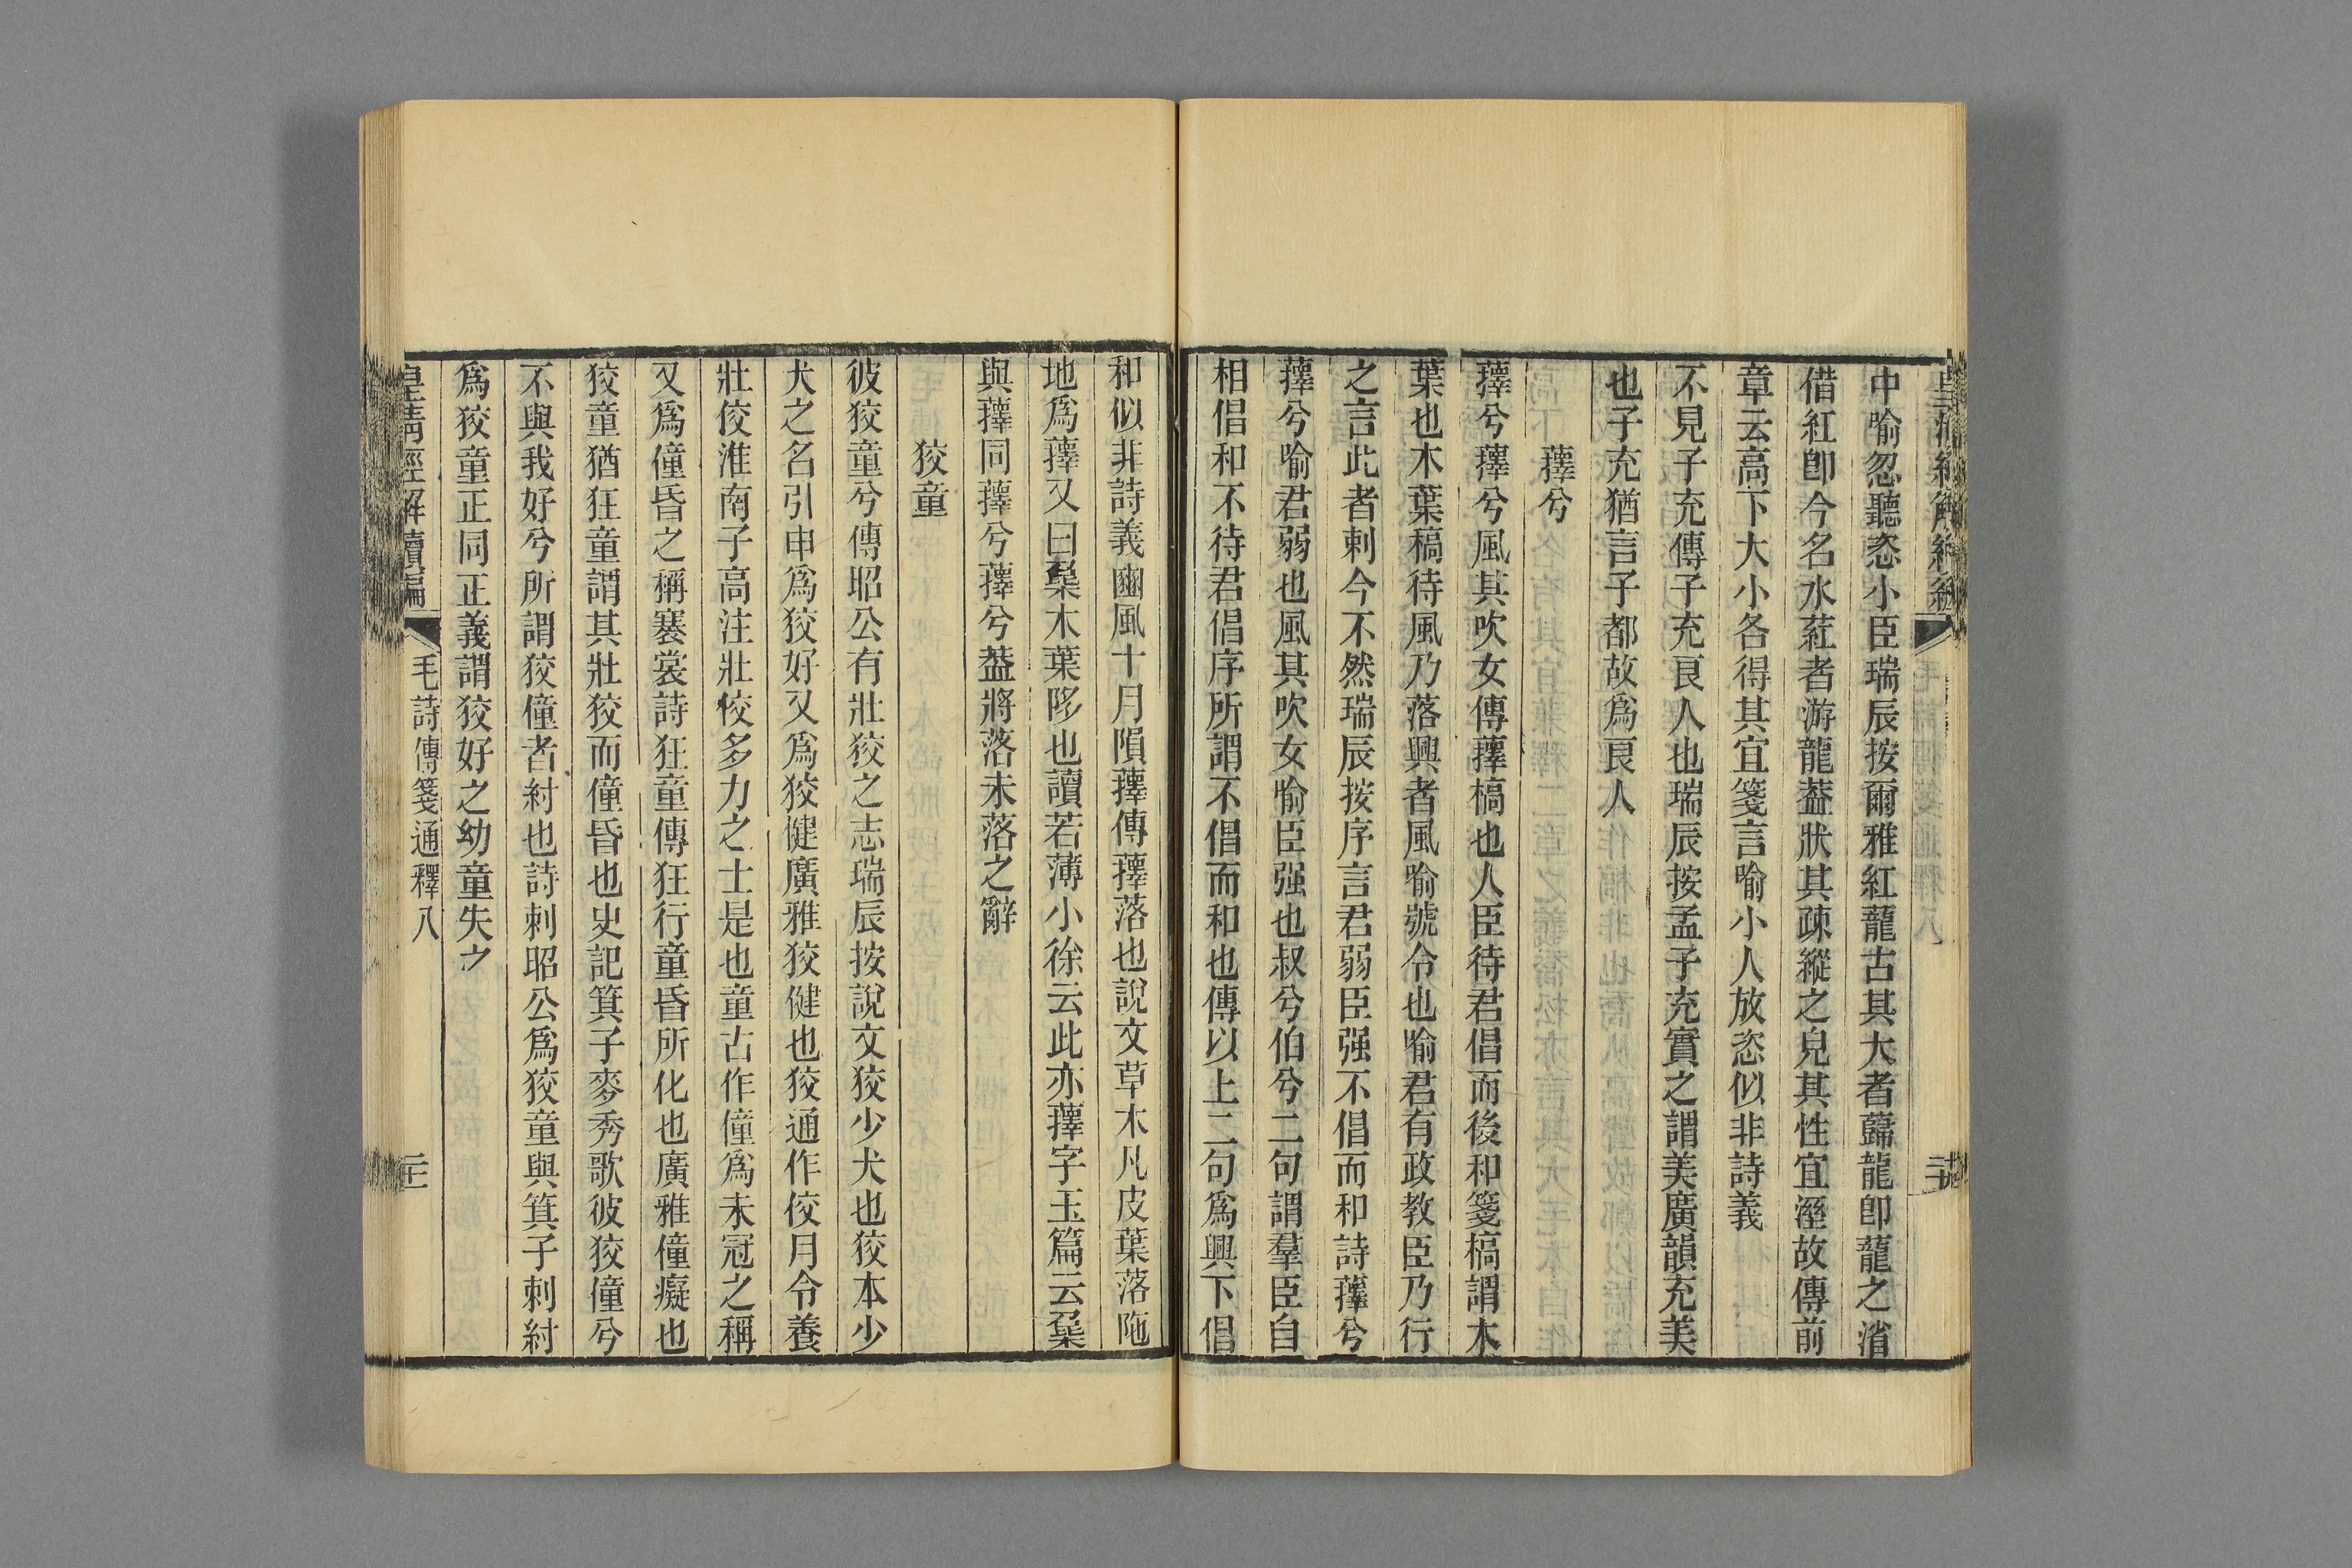 中喻忽聽恣小臣瑞辰按爾雅紅蘢古其大者蘬龍卽蘢之消
借紅卽今名水葒者游龍葢狀其疎縱之皃其性宜溼故傳前
章云高下大小各得其宜箋言喻小人放恣似非詩義
不見子充傳子充良人也瑞辰按孟子充實之謂美廣韻充美
也子充猶言子都故爲良人
蘀兮
蘀兮蘀兮風其吹女傳蘀槁也人臣待君倡而後和箋槁謂木
葉也木葉稿待風乃落興者風喻號令也喻君有政教臣乃行
之言此者刺今不然瑞辰按序言君弱臣强不倡而和詩蘀兮
蘀兮喻君弱也風其吹女喻臣强也叔兮伯兮二句謂羣臣自
相倡和不待君倡序所謂不倡而和也傳以上二句爲興下倡
和似非詩義豳風十月隕蘀傳蘀落也說文草木凡皮葉落陊
地爲蘀又曰枽木葉陊也讀若薄小徐云此亦蘀字玉篇云枽
與蘀同蘀兮蘀兮葢將落未落之辭
狡童
彼狡童兮傳昭公有壯狡之志瑞辰按說文狡少犬也狡本少
犬之名引申爲狡好又爲狡健廣雅狡健也狡通作佼月令養
壯佼淮南子高注壯佼多力之士是也童古作僮爲未冠之稱
又爲僮昏之稱褰裳詩狂童傳狂行童昏所化也廣雅僮癡也
狡童猶狂童謂其壯狡而僮昏也史記箕子麥秀歌彼狡僮兮
不與我好兮所謂狡僮者紂也詩刺昭公爲狡童與箕子刺紂
爲狡童正同正義謂狡好之幼童失之
皇淸經解續編 毛詩傳箋通釋八